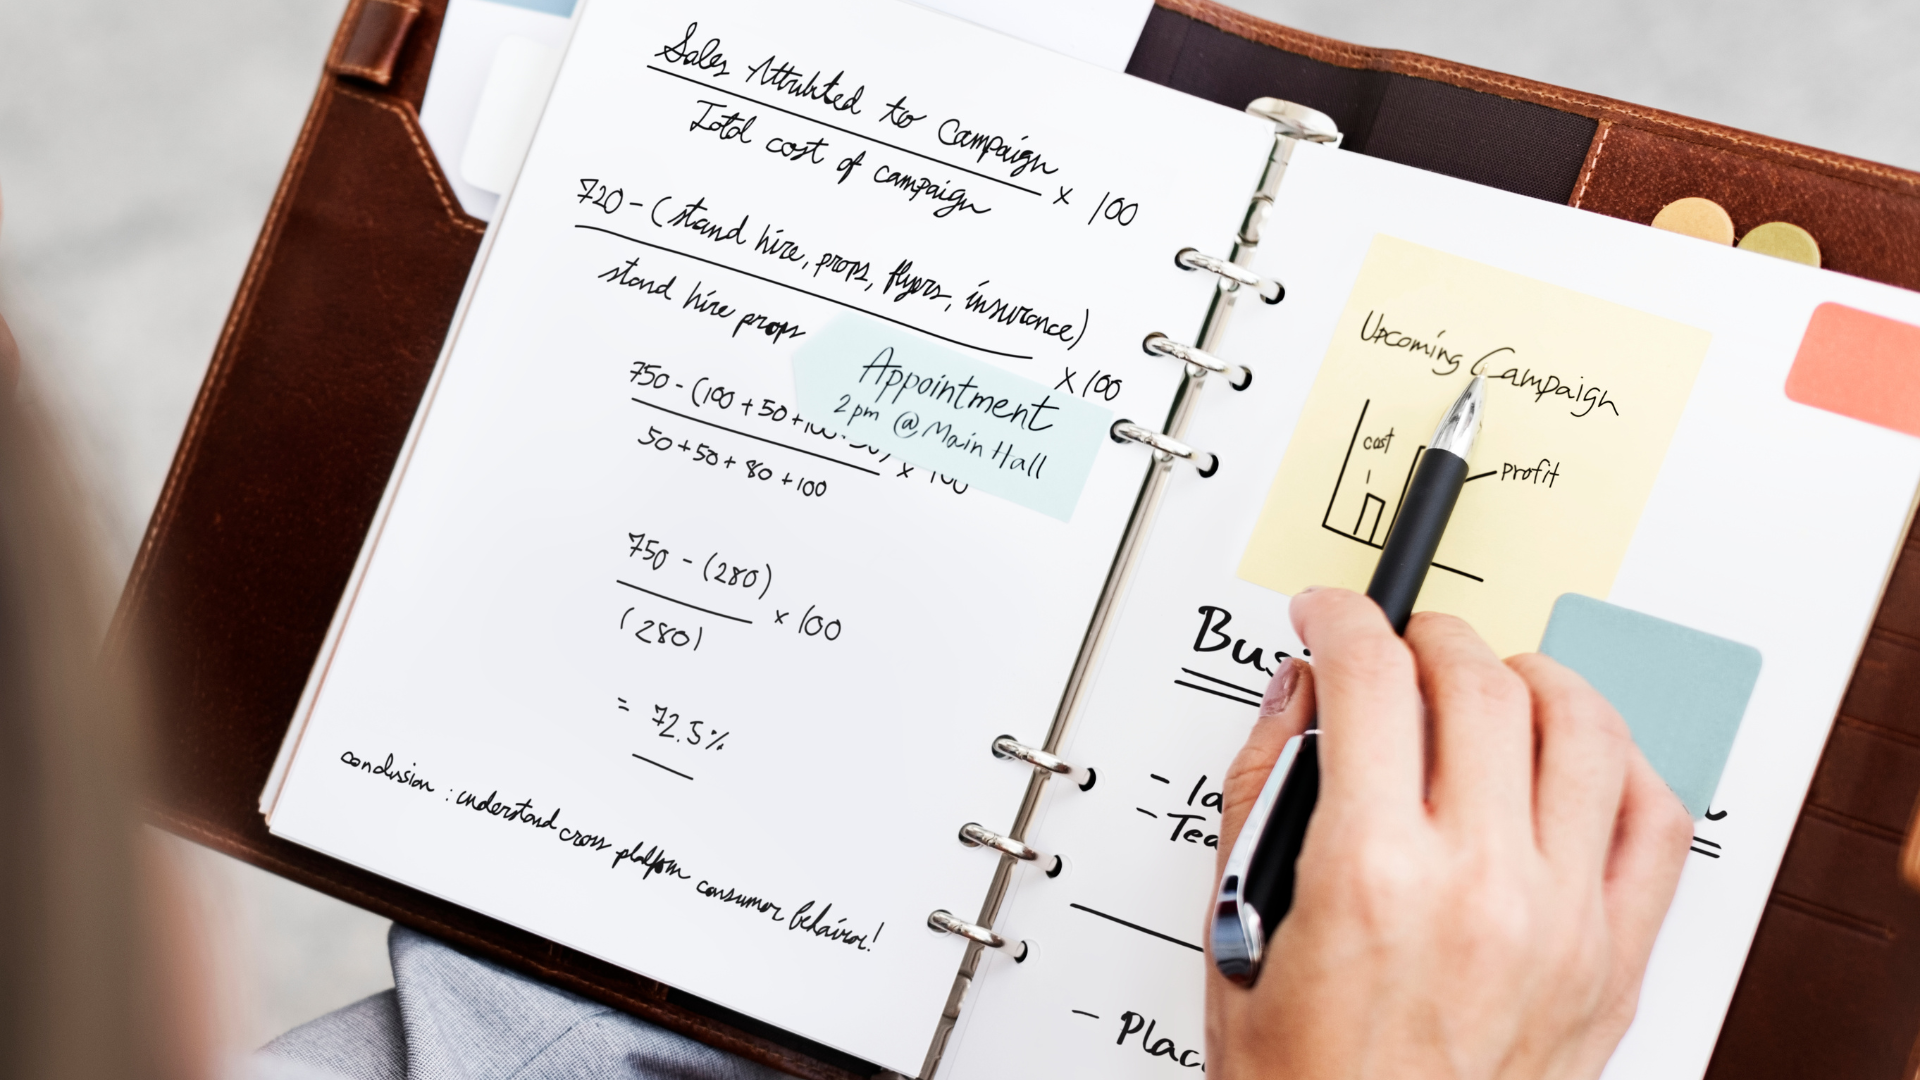 Sales Attributed to Campaign
Total cost of campaign
x 100
720 - (stand hire, props, flyers, insurance)
stand hire props
x 100
Appointment
2pm @ Main Hall
750 - (100 + 50 +
x 100
50 + 50 + 80 + 100
750 - (280)
(280)
x 100
= 72.5%
conclusion : understand cross platform consumer behavior!
Upcoming Campaign
cost
profit
Bus
- Plac